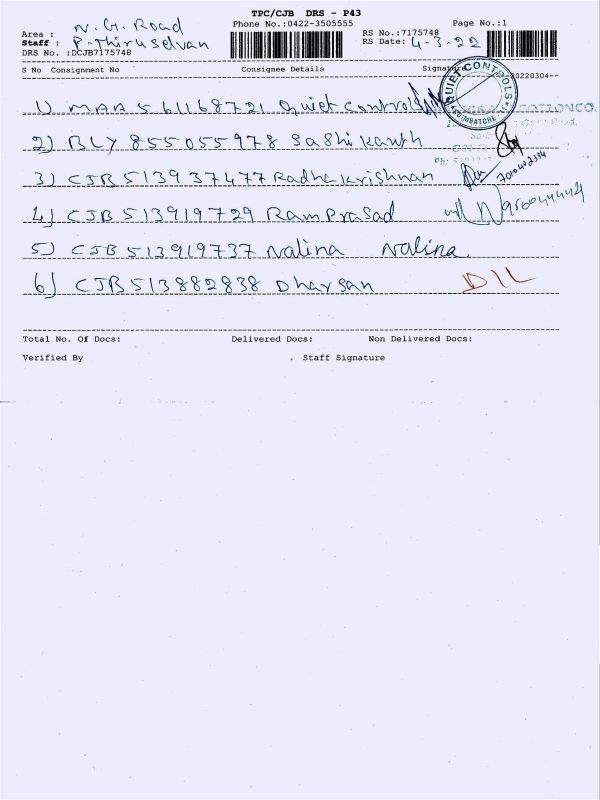 TPC/CJB DRS - P43
Area : N.G. Road Phone No.:0422-3505555 Page No.:1
Staff : P-Thiruselvan RS No.:7175748
DRS No. :DCJB7175748 RS Date: 4-3-22
S No Consignment No Consignee Details Signature 20220304--
1) MAA 561168721 Quiet Controls
QUIET CONTROLS
COIMBATORE
COTTON CO.
2) BLY 855055978 Sashikanth
3) CJB 513937477 Radhakrishnan
4) CJB 513919729 RamPrasad
5) CJB 513919737 Nalina Nalina
6) CJB 513882838 Dharsan DIL
Total No. Of Docs: Delivered Docs: Non Delivered Docs:
Verified By . Staff Signature